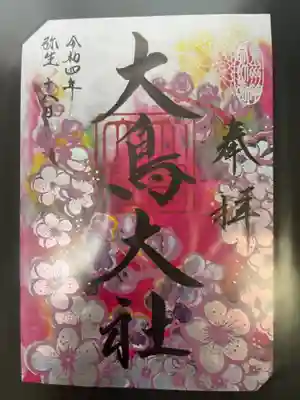 奉拝
大鳥大社
令和四年
弥生